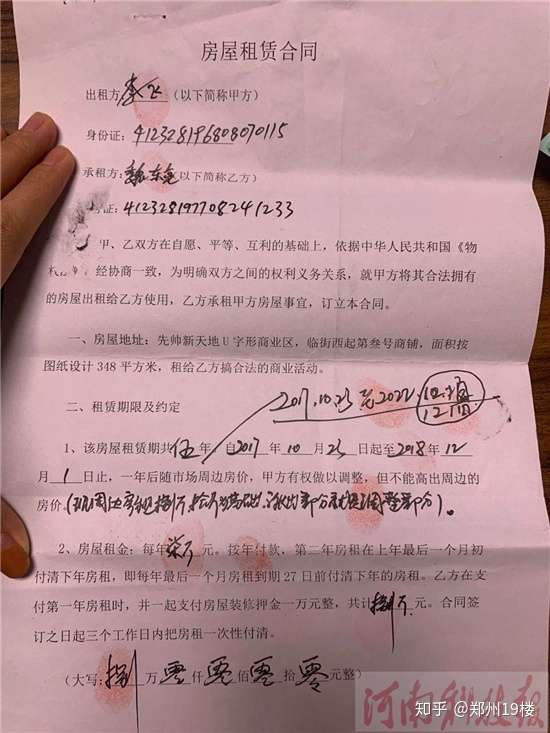 房屋租赁合同
出租方:李飞(以下简称甲方)
身份证:412328196808070115
承租方:魏东(以下简称乙方)
证:412328197708241233
甲、乙双方在自愿、平等、互利的基础上,依据中华人民共和国《物
经协商一致,为明确双方之间的权利义务关系,就甲方将其合法拥有
的房屋出租给乙方使用,乙方承租甲方房屋事宜,订立本合同。
一、房屋地址:先帅新天地U字形商业区,临街西起第叁号商铺,面积按
图纸设计348平方米,租给乙方搞合法的商业活动。
2017.10.23至2022.12.1
12.1日
二、租赁期限及约定
1、该房屋租赁期共伍年,自2017年10月23日起至2018年12
月1日止,一年后随市场周边房价,甲方有权做以调整,但不能高出周边的
房价,(现周边房租捌万,部分就是调整部分)。
2、房屋租金:每年柒万元。按年付款,第二年房租在上年最后一个月初
付清下年房租,即每年最后一个月房租到期27日前付清下年的房租。乙方在支
付第一年房租时,并一起支付房屋装修押金一万元整,共计捌万元。合同签
订之日起三个工作日内把房租一次性付清。
(大写:捌万零仟零佰零拾零元整)
河南科技报
知乎 @郑州19楼